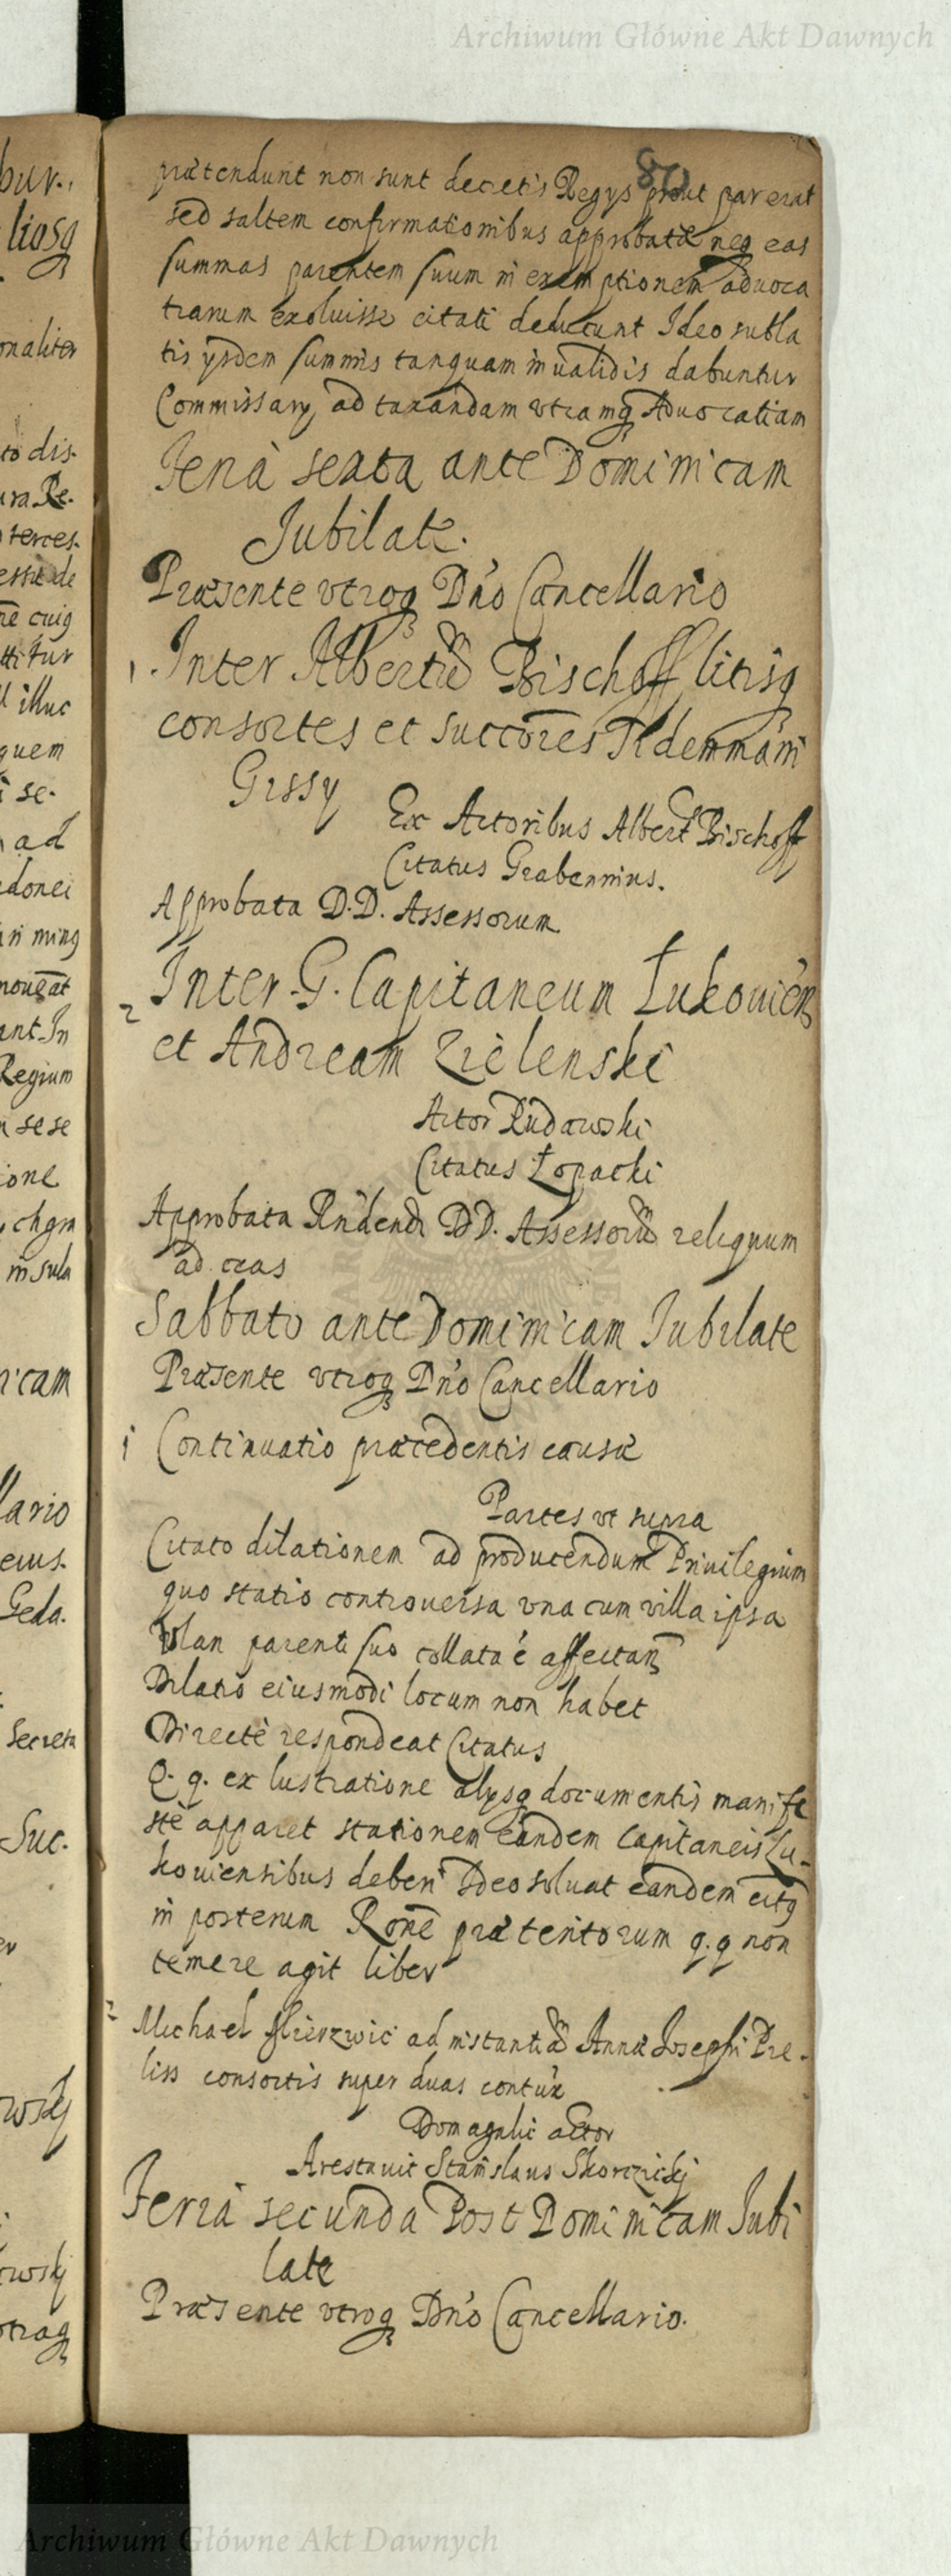 Archiwum Główne Akt Dawnych
80
prætendunt non sunt decretis Regys prout par erat
sed saltem confirmationibus approbatæ neq eas
summas parentem suum in exemptionem aduoca
tiarum exoluisse citati deducunt Ideo subla
tis ysdem summis tanquam inualidis dabuntur
Commissary ad taxandam vtramq Aduocatiam
Feria sexta ante Dominicam
Jubilate.
Præsente vtroq Dno Cancellario
1. Inter Albertũ Bischoff litisq
consortes et succōres Tidemmani
Gissy
Ex Actoribus Albert Bischoff
Citatus Grabennius.
Approbata D.D. Assessorum
2 Inter G. Capitaneum Łukouien
et Andream Zielenski
Actor Rudawski
Citatus Łopacki
Approbata Rndend DD. Assessorũ reliquum
ad cras
Sabbato ante Dominicam Jubilate
Præsente vtroq Dno Cancellario
1 Continuatio præcedentis causæ
Partes vt supra
Citato dilationem ad producendum Priuilegium
quo statio controuersa vna cum villa ipsa
Wlan parenti suo collata ē affectan
Dilatio eiusmodi locum non habet
Directè respondeat Citatus
Q. q. ex lustratione alysq documentis manife
stè apparet stationem eandem Capitaneis Lu-
kouiensibus deberi Ideo soluat eandem citq
in posterum Ronē præteritorum q.q non
temere agit liber
2 Michael ad instantiã Annæ Josephi Pre-
liss consortis super duas contũx
Domagalic actor
Arestauit Stanislaus Skorczickj
Feria secunda Post Dominicam Jubi
late
Præsente vtroq Dno Cancellario.
bur.,
liosq
onaliter
to dis-
ura Re-
terces-
cuiq
ttitur
illuc
quem
se-
ad
donei
minq
moueat
ant In
Regium
sese
ione
insula
nicam
llario
eius-
Geda-
Secreta
Suc-
owskj
owskj
otroq
Archiwum Główne Akt Dawnych